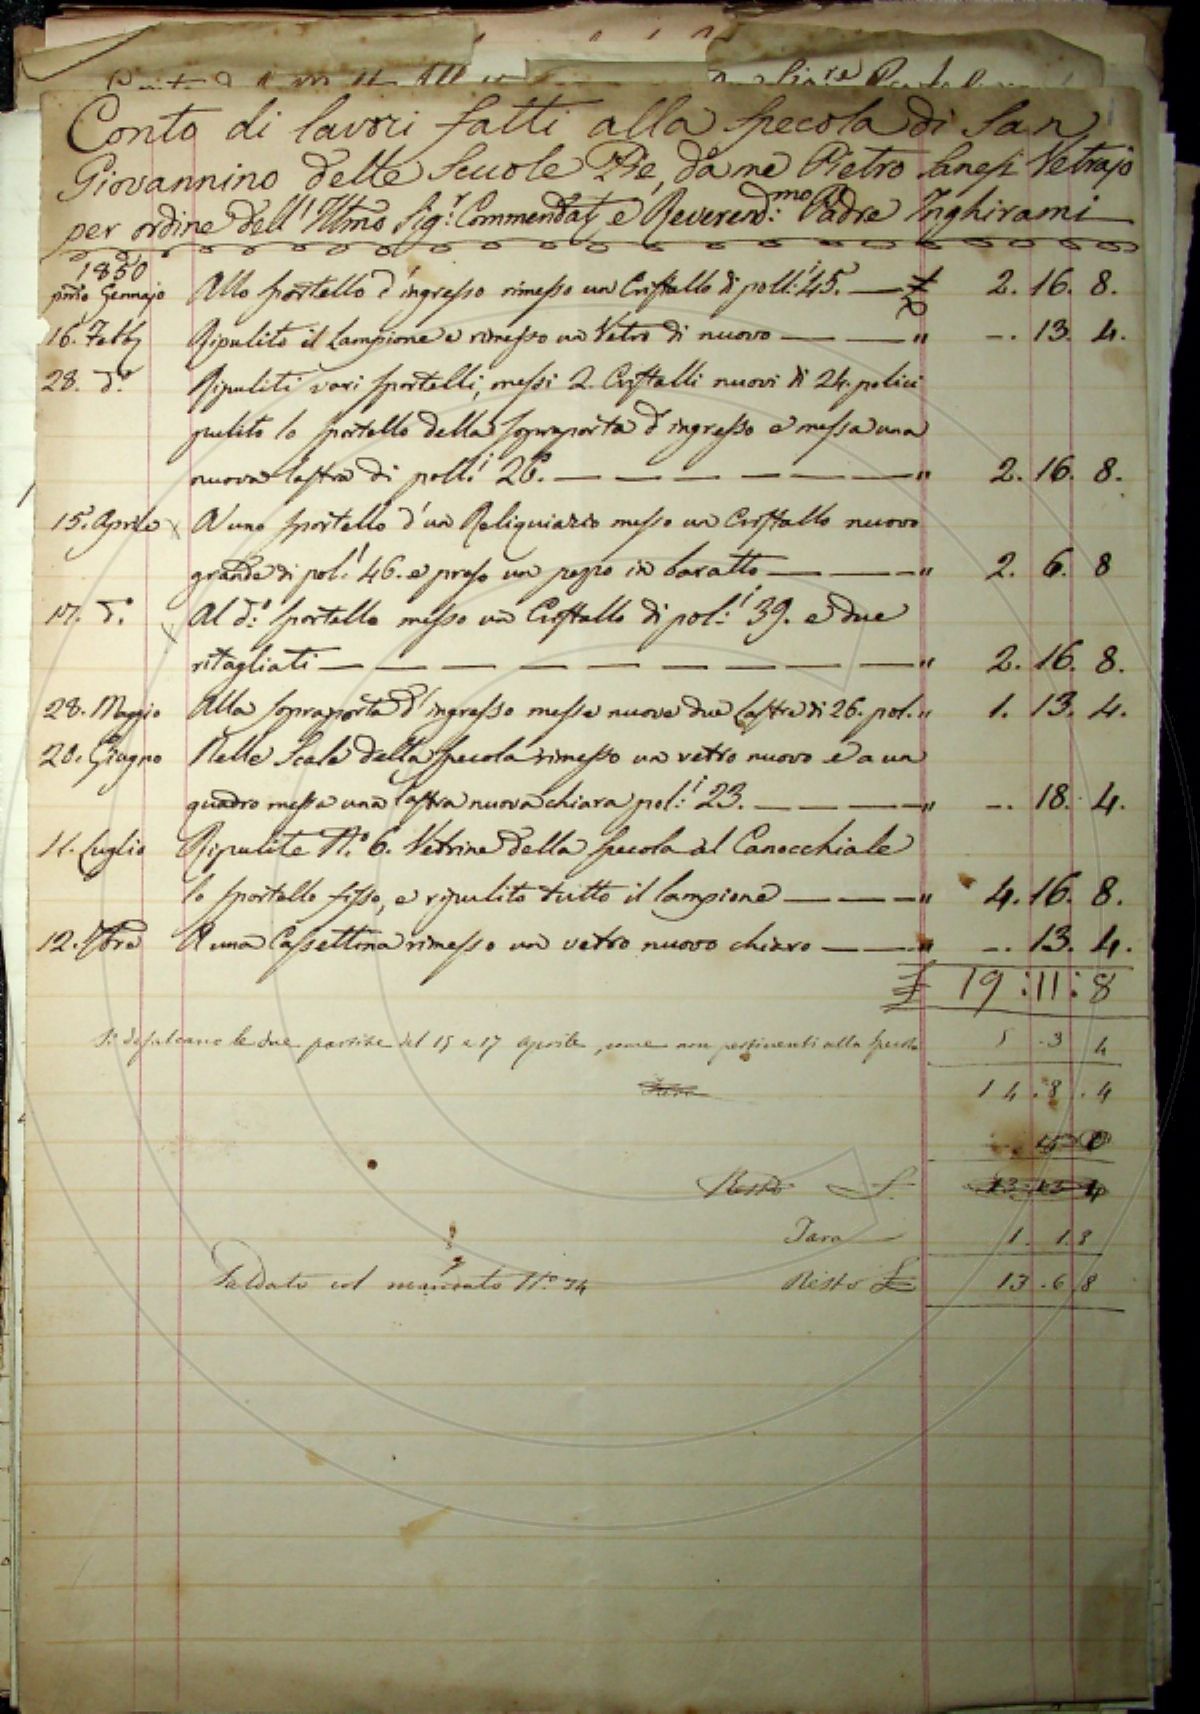 Conto di lavori fatti alla Specola di San
Giovannino delle Scuole Pie, da me Pietro Sanesi Vetrajo
per ordine dell' Illmo Sigr. Commendat. e Reverendmo. Padre Inghirami
1850
primo Gennajo Allo sportello d'ingresso rimesso un Cristallo di polli: 45. — £ 2. 16. 8.
16. Febb. Ripulito il Lampione e rimesso un Vetro di nuovo — — " -. 13. 4.
28. do. Ripuliti vari sportelli, messi 2. Cristalli nuovi di 24. polici
pulito lo sportello della sopraporta d'ingresso e messa una
nuova lastra di polli: 26. — — — — — — " 2. 16. 8.
15. Aprile A uno sportello d'un Reliquiario messo un Cristallo nuovo
grande di poli: 46. e preso un pezzo in baratto — — — " 2. 6. 8
17. do. Al do. sportello messo un Cristallo di poli: 39. e due
ritagliati — — — — — — — — — — " 2. 16. 8.
28. Maggio Alla sopraporta d'ingresso messe nuove due lastre di 26. pol. " 1. 13. 4.
20. Giugno Nelle Scale della Specola rimesso un vetro nuovo e a un
quadro messa una lastra nuova chiara poli: 23. — — — — " -. 18. 4.
11. Luglio Ripulite No. 6. Vetrine della Specola al Canocchiale
lo sportello fisso, e ripulito tutto il lampione — — — " 4. 16. 8.
12. 7bre A una Cassettina rimesso un vetro nuovo chiaro — — " -. 13. 4.
£ 19 : 11 : 8
Si defalcano le due partite del 15 e 17 Aprile, come non pertinenti alla Specola 5 . 3 4
14 . 8 . 4
Resto £ 13 13 4
Tara 1. 1. 8
Saldato col mandato No. 34 Resto £ 13 . 6 . 8